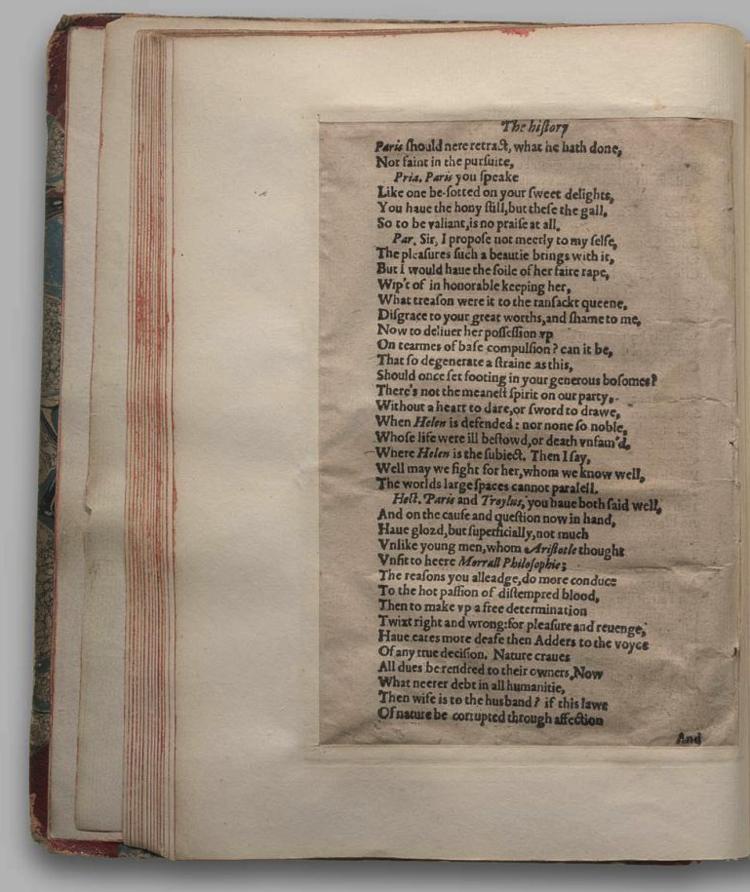 The hiſtory
Paris ſhould nere retract, what he hath done,
Not faint in the purſuite,
Pria. Paris you ſpeake
Like one be-ſotted on your ſweet delights,
You haue the hony ſtill,but theſe the gall,
So to be valiant,is no praiſe at all.
Par. Sir, I propoſe not meerly to my ſelfe,
The pleaſures ſuch a beautie brings with it,
But I would haue the ſoile of her faire rape,
Wip't of in honorable keeping her,
What treaſon were it to the ranſackt queene,
Diſgrace to your great worths,and ſhame to me,
Now to deliuer her poſſeſſion vp
On tearmes of baſe compulſion? can it be,
That ſo degenerate a ſtraine as this,
Should once ſet footing in your generous boſomes?
There's not the meaneſt ſpirit on our party,
Without a heart to dare,or ſword to drawe,
When Helen is defended: nor none ſo noble,
Whoſe life were ill beſtowd,or death vnfam'd,
Where Helen is the ſubiect. Then I ſay,
Well may we fight for her,whom we know well,
The worlds large ſpaces cannot paralell.
Hect. Paris and Troylus, you haue both ſaid well,
And on the cauſe and queſtion now in hand,
Haue glozd,but ſuperficially,not much
Vnlike young men,whom Ariſtotle thought
Vnfit to heere Morrall Philoſophie;
The reaſons you alleadge,do more conduce
To the hot paſſion of diſtempred blood,
Then to make vp a free determination
Twixt right and wrong:for pleaſure and reuenge,
Haue eares more deafe then Adders to the voyce
Of any true deciſion. Nature craues
All dues be rendred to their owners,Now
What neerer debt in all humanitie,
Then wife is to the husband? if this lawe
Of nature be corrupted through affection
And